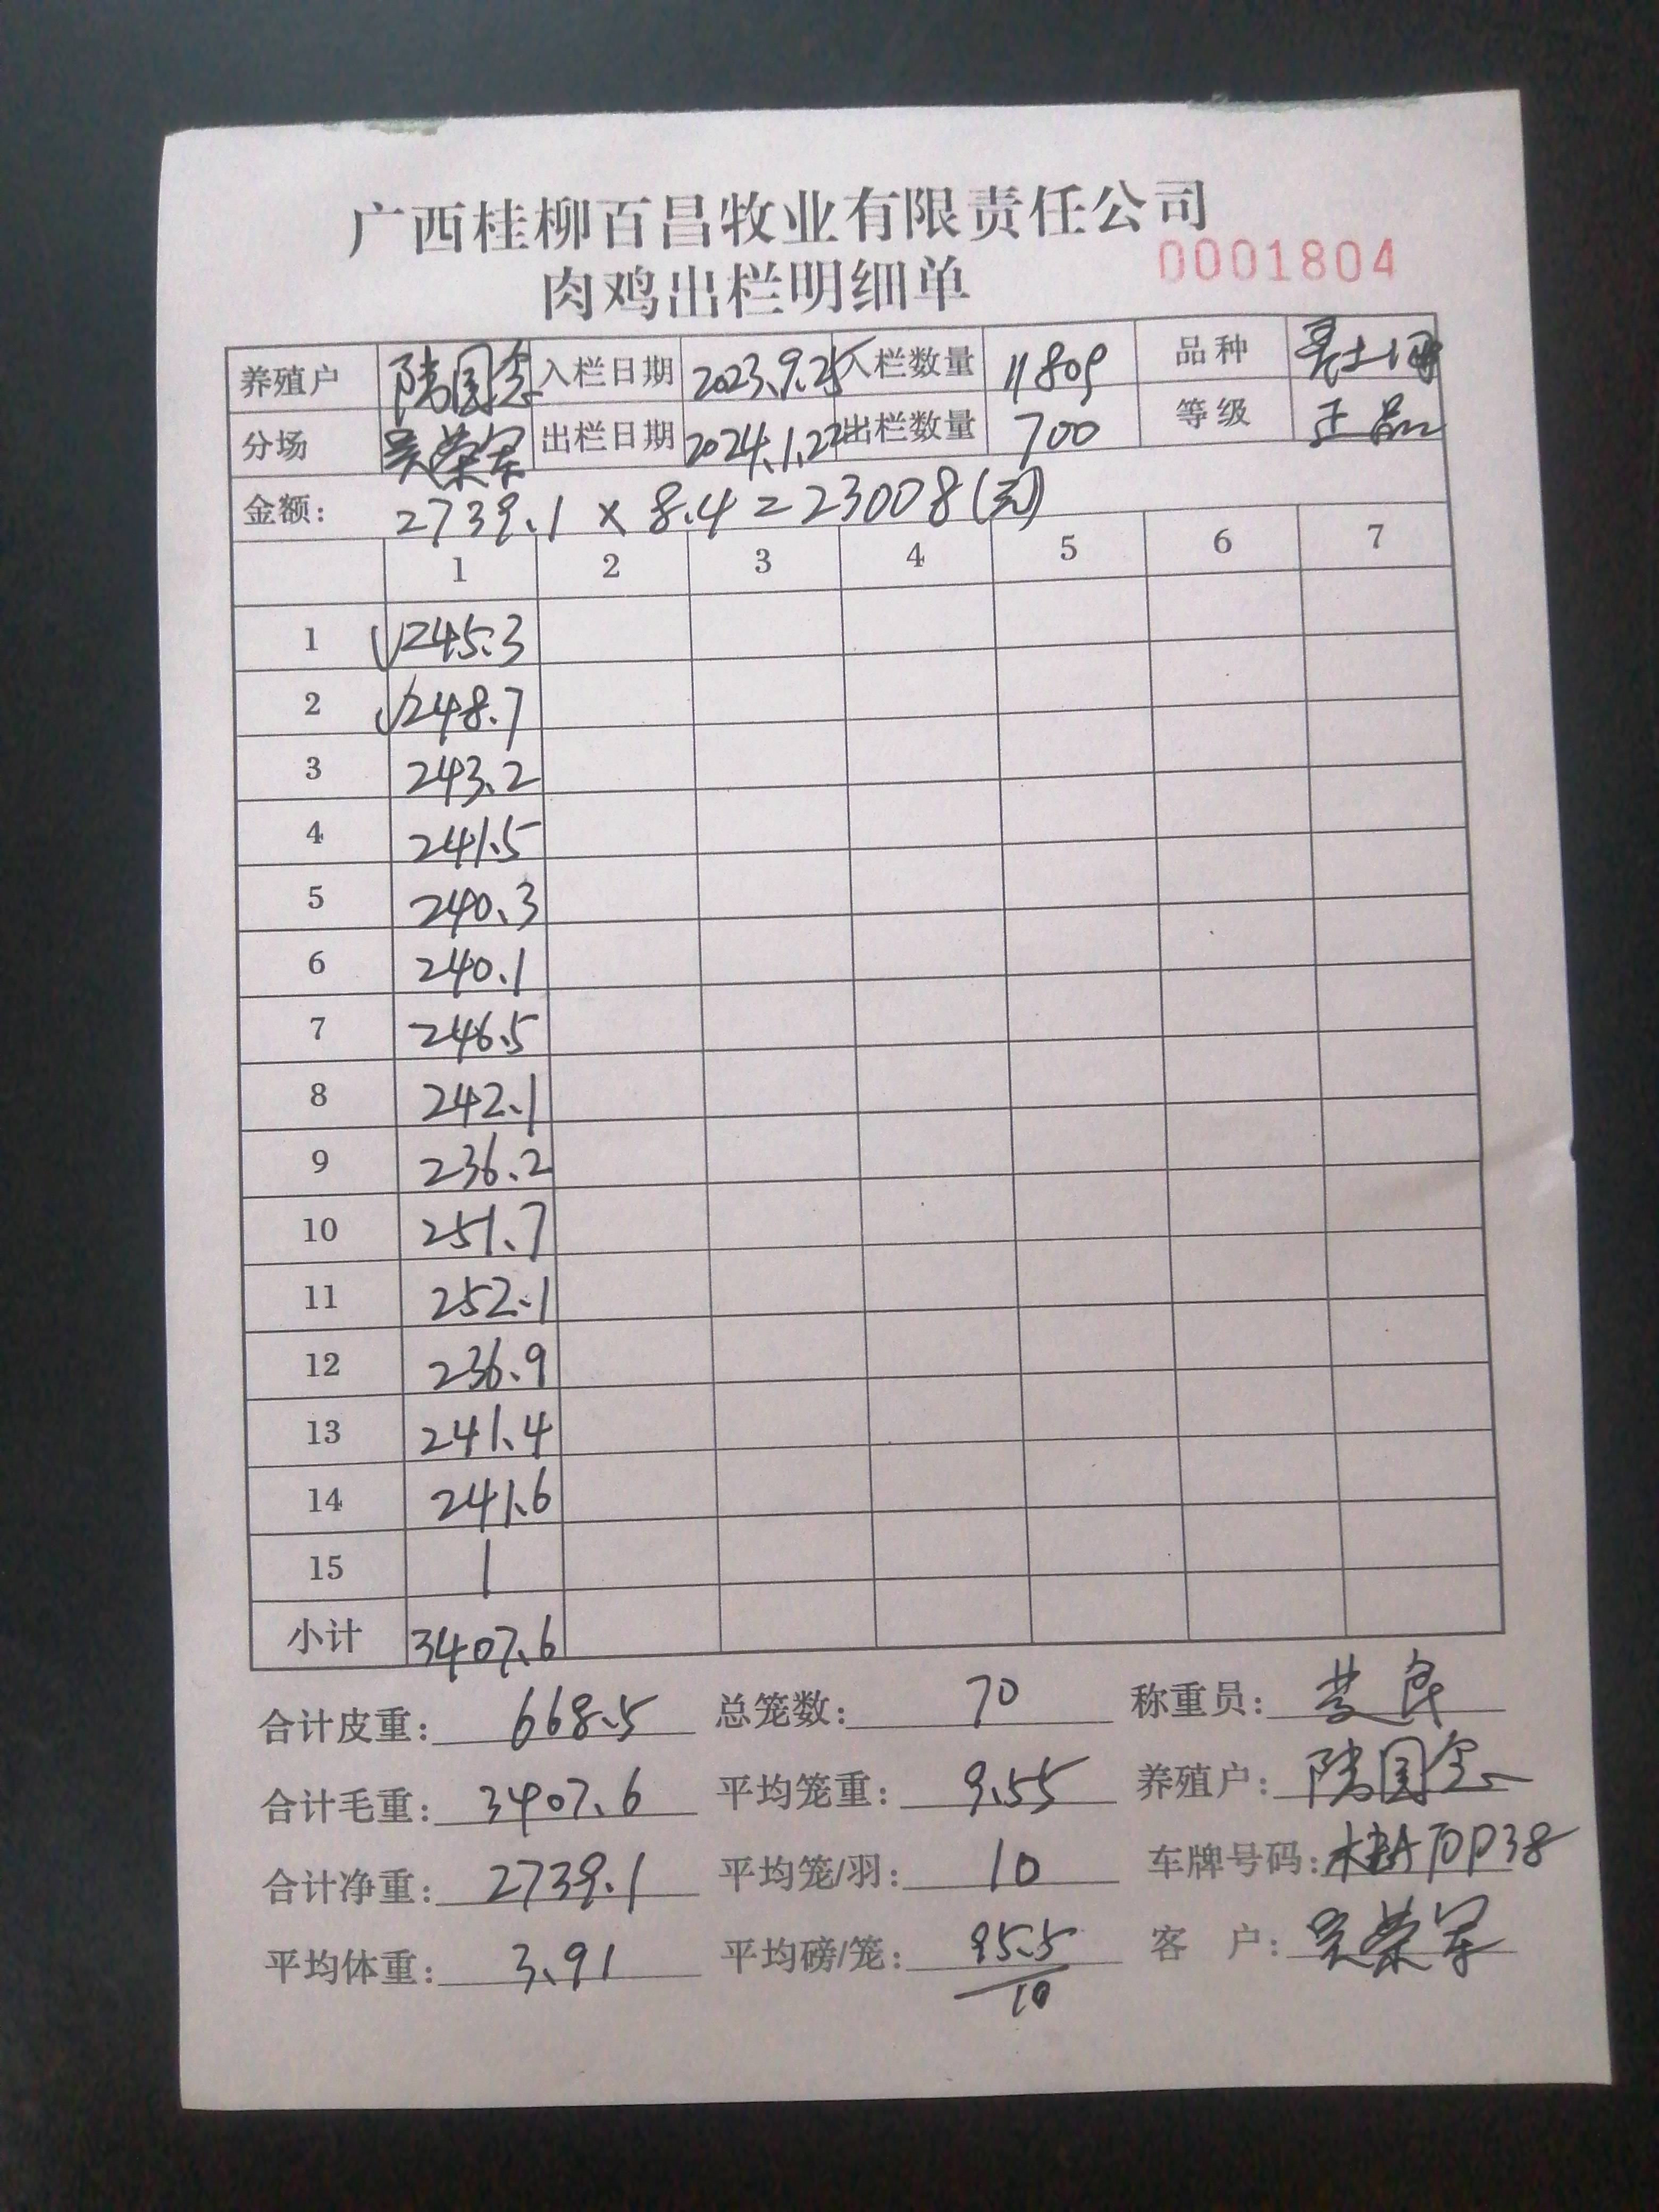 广西桂柳百昌牧业有限责任公司
肉鸡出栏明细单 0001804
养殖户 陆国念 入栏日期 2023.9.25 入栏数量 11809 品种
分场 吴荣军 出栏日期 2024.1.22 出栏数量 700 等级 正品
金额: 2739.1 × 8.4 = 23008(元)
1 2 3 4 5 6 7
1 √245.3
2 √248.7
3 243.2
4 241.5
5 240.3
6 240.1
7 246.5
8 242.1
9 236.2
10 251.7
11 252.1
12 236.9
13 241.4
14 241.6
15 /
小计 3407.6
合计皮重: 668.5 总笼数: 70 称重员:
合计毛重: 3407.6 平均笼重: 9.55 养殖户: 陆国念
合计净重: 2739.1 平均笼/羽: 10 车牌号码:
平均体重: 3.91 平均磅/笼: 95.5/10 客户: 吴荣军